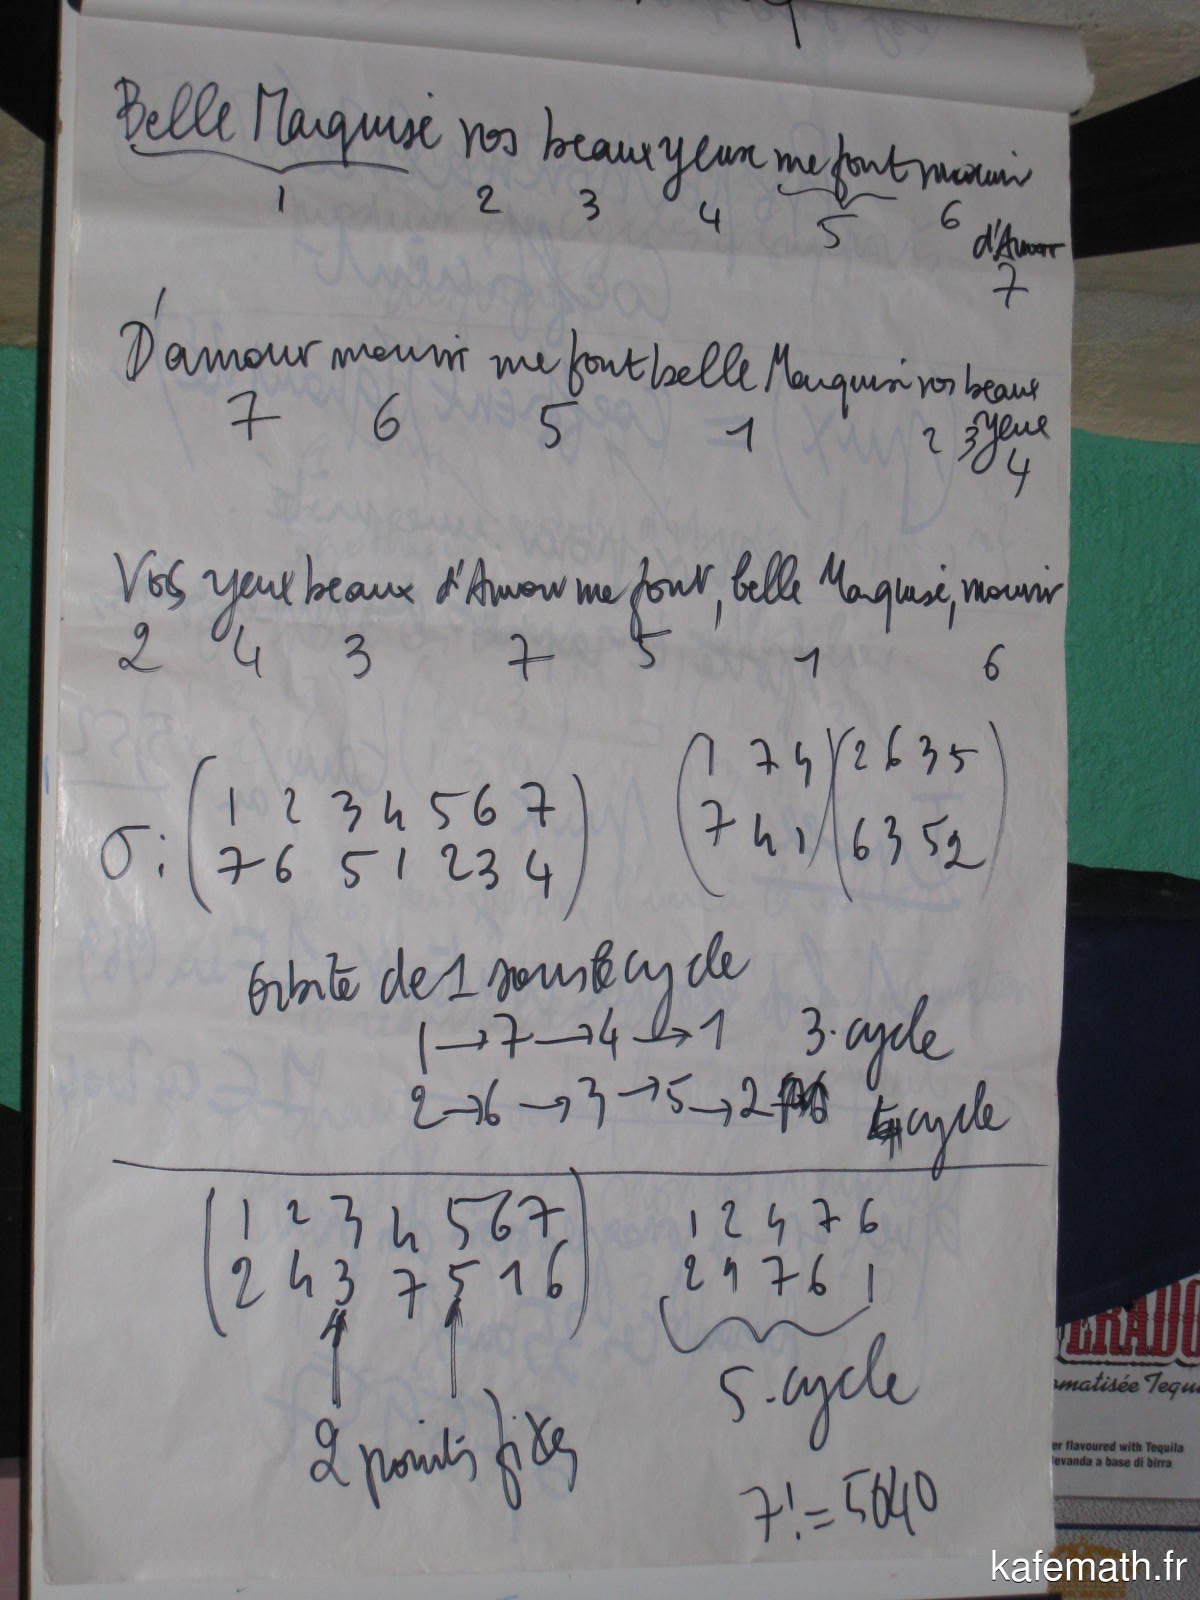 Belle Marquise vos beaux yeux me font mourir
1 2 3 4 5 6
d'Amour
7
D'amour mourir me font belle Marquise vos beaux
yeux
7 6 5 1 2 3 4
Vos yeux beaux d'Amour me font, belle Marquise, mourir
2 4 3 7 5 1 6
σ: (1 2 3 4 5 6 7) (1 7 4)(2 6 3 5)
(7 6 5 1 2 3 4) (7 4 1)(6 3 5 2)
Orbite de 1 sous le cycle
1 → 7 → 4 → 1 3-cycle
2 → 6 → 3 → 5 → 2 4 cycle
(1 2 3 4 5 6 7) 1 2 4 7 6
(2 4 3 7 5 1 6) 2 4 7 6 1
5-cycle
2 points fixes
7! = 5040
ERADO
omatisée Tequ
er flavoured with Tequila
evanda a base di birra
kafemath.fr